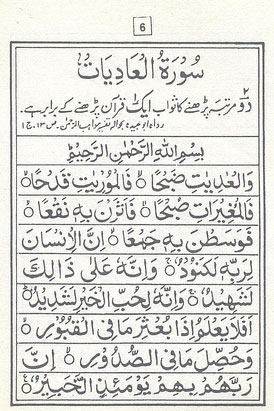 6
سُورَةُ الْعَادِيَات
۲
دو مرتبہ پڑھنے کا ثواب ایک قرآن پڑھنے کے برابر ہے۔
رواہ ابو عبیدہ بحوالہ تفسیر مواہب الرحمٰن۔ ص ۱۳۔ ج ۱
بِسْمِ اللهِ الرَّحْمٰنِ الرَّحِيْمِ
وَالْعٰدِيٰتِ ضَبْحًا ۙ فَالْمُوْرِيٰتِ قَدْحًا ۙ
فَالْمُغِيْرَاتِ صُبْحًا ۙ فَاَثَرْنَ بِهٖ نَقْعًا ۙ
فَوَسَطْنَ بِهٖ جَمْعًا ۙ اِنَّ الْاِنْسَانَ
لِرَبِّهٖ لَكَنُوْدٌ ۚ وَاِنَّهٗ عَلٰى ذَالِكَ
لَشَهِيْدٌ ۚ وَاِنَّهٗ لِحُبِّ الْخَيْرِ لَشَدِيْدٌ ؕ
اَفَلَا يَعْلَمُ اِذَا بُعْثِرَ مَا فِى الْقُبُوْرِ ۙ
وَحُصِّلَ مَا فِى الصُّدُوْرِ ۙ اِنَّ
رَبَّهُمْ بِهِمْ يَوْمَئِذٍ لَّخَبِيْرٌ ۧ